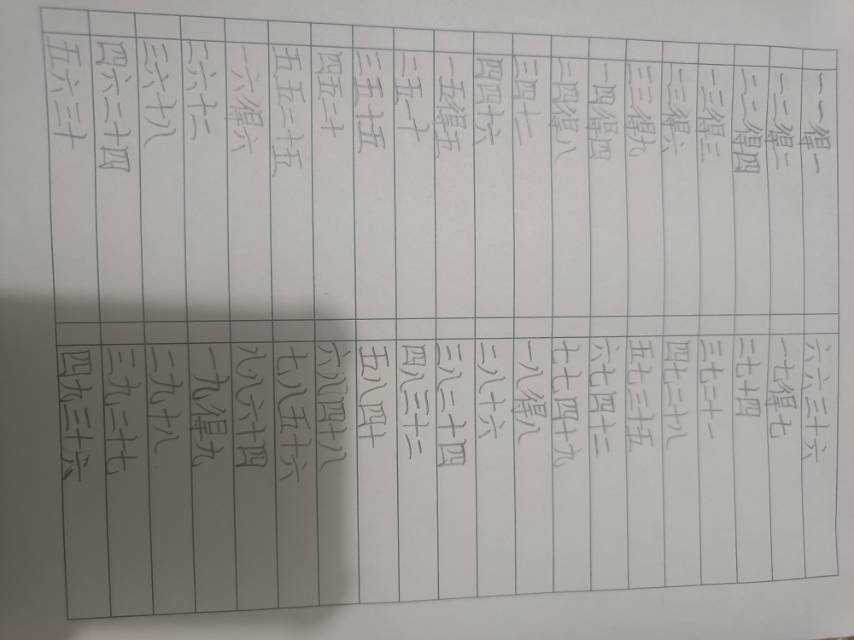 一一得一
一二得二
二二得四
一三得三
二三得六
三三得九
一四得四
二四得八
三四十二
四四十六
一五得五
二五一十
三五十五
四五二十
五五二十五
一六得六
二六十二
三六十八
四六二十四
五六三十
六六三十六
一七得七
二七十四
三七二十一
四七二十八
五七三十五
六七四十二
七七四十九
一八得八
二八十六
三八二十四
四八三十二
五八四十
六八四十八
七八五十六
八八六十四
一九得九
二九十八
三九二十七
四九三十六